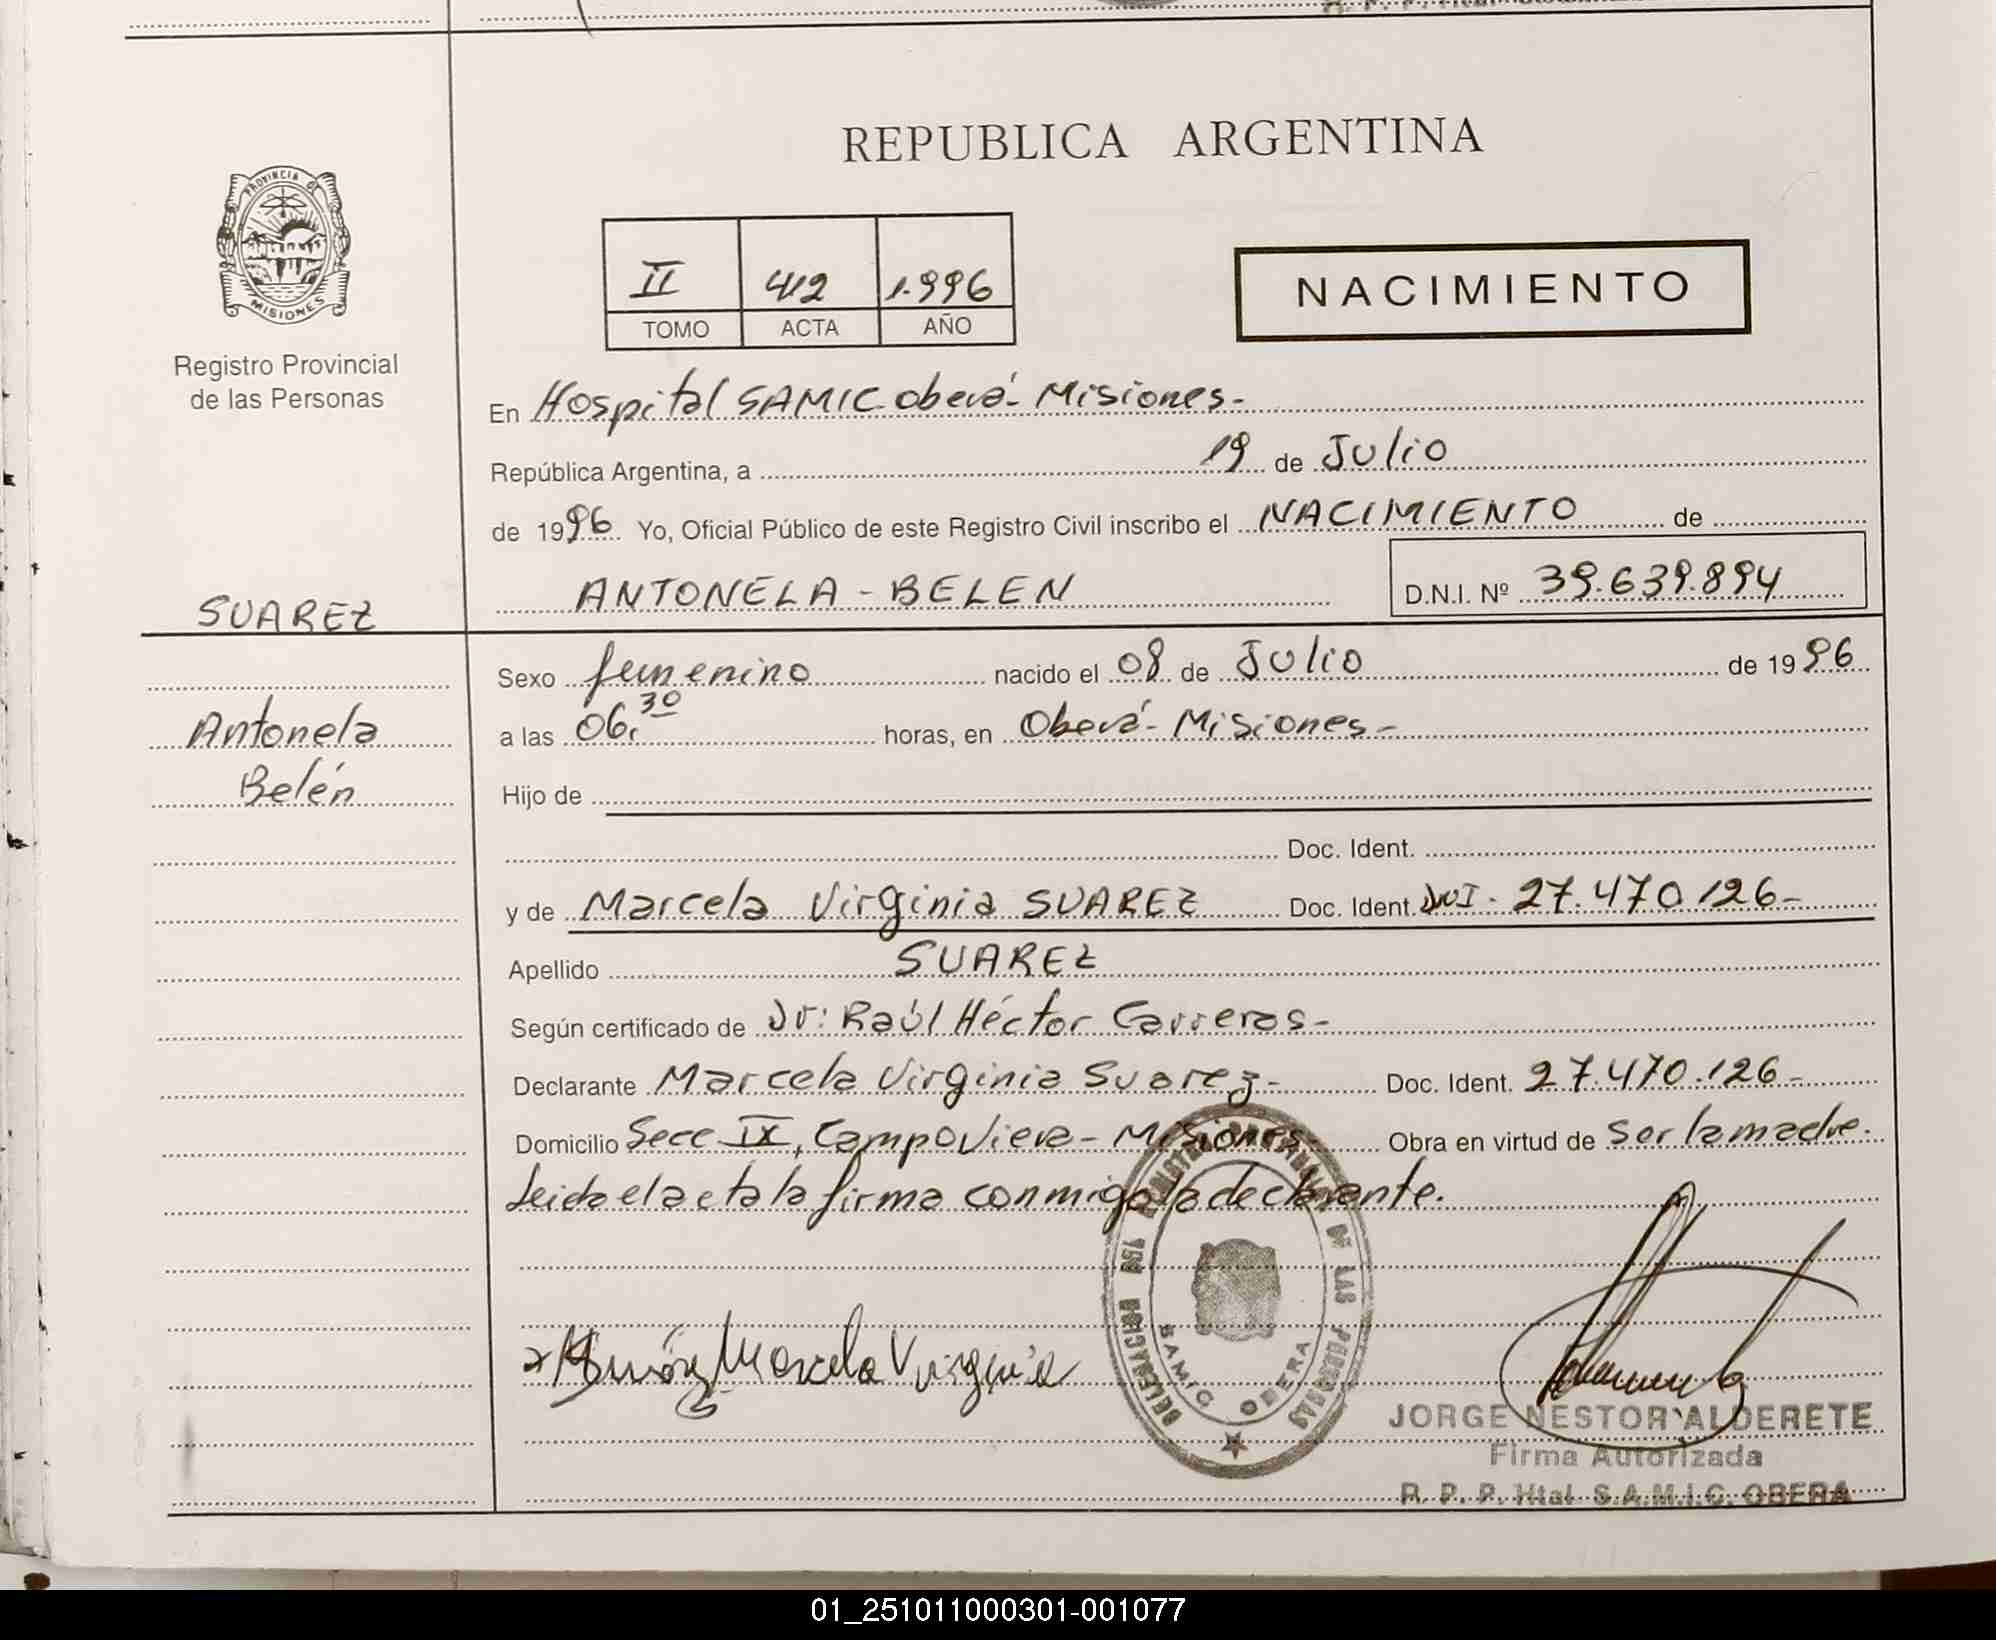 REPUBLICA ARGENTINA
PROVINCIA DE
MISIONES
Registro Provincial
de las Personas
II 412 1.996
TOMO ACTA AÑO
NACIMIENTO
En Hospital SAMIC Oberá - Misiones -
República Argentina, a 19 de Julio
de 1996 Yo, Oficial Público de este Registro Civil inscribo el NACIMIENTO de
SUAREZ
ANTONELA - BELEN D.N.I. Nº 39.639.894
Sexo femenino nacido el 08 de Julio de 1996
Antonela
a las 06.30 horas, en Oberá - Misiones -
Belén
Hijo de
Doc. Ident.
y de Marcela Virginia SUAREZ Doc. Ident. DNI - 27.470.126 -
Apellido SUAREZ
Según certificado de Dr: Raúl Héctor Carreras -
Declarante Marcela Virginia Suarez - Doc. Ident. 27.470.126 -
Domicilio Secc IX, Campo Viera - Misiones - Obra en virtud de ser la madre.
Leida el acta la firma conmigo la declarante.
DELEGACION DEL REGISTRO PROVINCIAL DE LAS PERSONAS
SAMIC OBERA
Marcela Virginia
JORGE NESTOR ALDERETE
Firma Autorizada
R. P. P. Htal S.A.M.I.C. OBERA
01_251011000301-001077